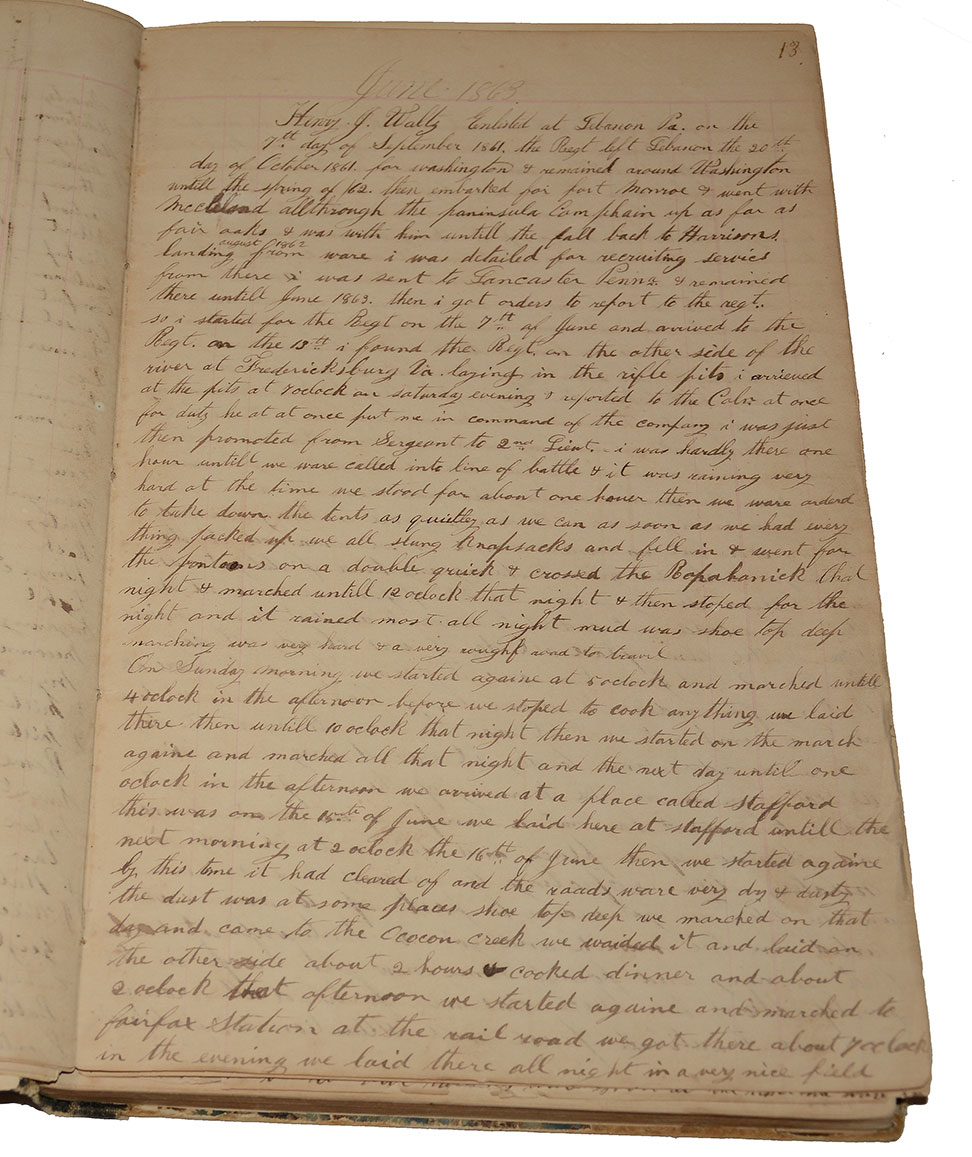 13.
June 1863
Henry J. Waltz Enlisted at Lebanon Pa. on the
7th day of September 1861. the Regt left Lebanon the 20th
day of October 1861. for washington & remained around Washington
untill the spring of 62. then embarked for fort Monroe & went with
allthrough the peninsula Camphain up as far as
fair oaks & was with him untill the fall back to Harrisons.
landing august 1862 from ware i was detailed for recruiting service
from there i was sent to Lancaster Penna & remained
there untill June 1863. then i got orders to report to the regt..
so i started for the Regt on the 7th of June and arrived to the
Regt. on the 13th i found the Regt. on the other side of the
river at Fredericksburg Va. laying in the rifle pits i arrieved
at the pits at 7oclock on saturday evening & reported to the Coln at once
for duty he at at once put me in command of the company i was just
then promoted from Sergeant to 2nd Lieut. i was hardly there one
hour untill we ware called into line of battle & it was raining very
hard at the time we stood for about one hover then we ware orderd
to take down the tents as quietley as we can as soon as we had every
thing packed up we all slung Knapsacks and fell in & went for
the pontoons on a double quick & crossed the Repahanick that
night & marched untill 12 oclock that night & then stoped for the
night and it rained most all night mud was shoe top deep
marching was very hard & a very rought road to travil
On Sunday morning we started againe at 5 oclock and marched untill
4 oclock in the afternoon before we stoped to cook anything we laid
there then untill 10 oclock that night then we started on the march
againe and marched all that night and the next day until one
oclock in the afternoon we arrived at a place called stafford
this was on the of June we laid here at stafford untill the
next morning at 2 oclock the 16th of June then we started againe
by this time it had cleared of and the roads ware very dry & dusty
the dust was at some places shoe top deep we marched on that
day and came to the Ococon Creek we waided it and laid on
the other side about 2 hours & cooked dinner and about
2 oclock that afternoon we started againe and marched to
fairfax Station at the rail road we got there about 7 oclock
in the evening we laid there all night in a very nice field